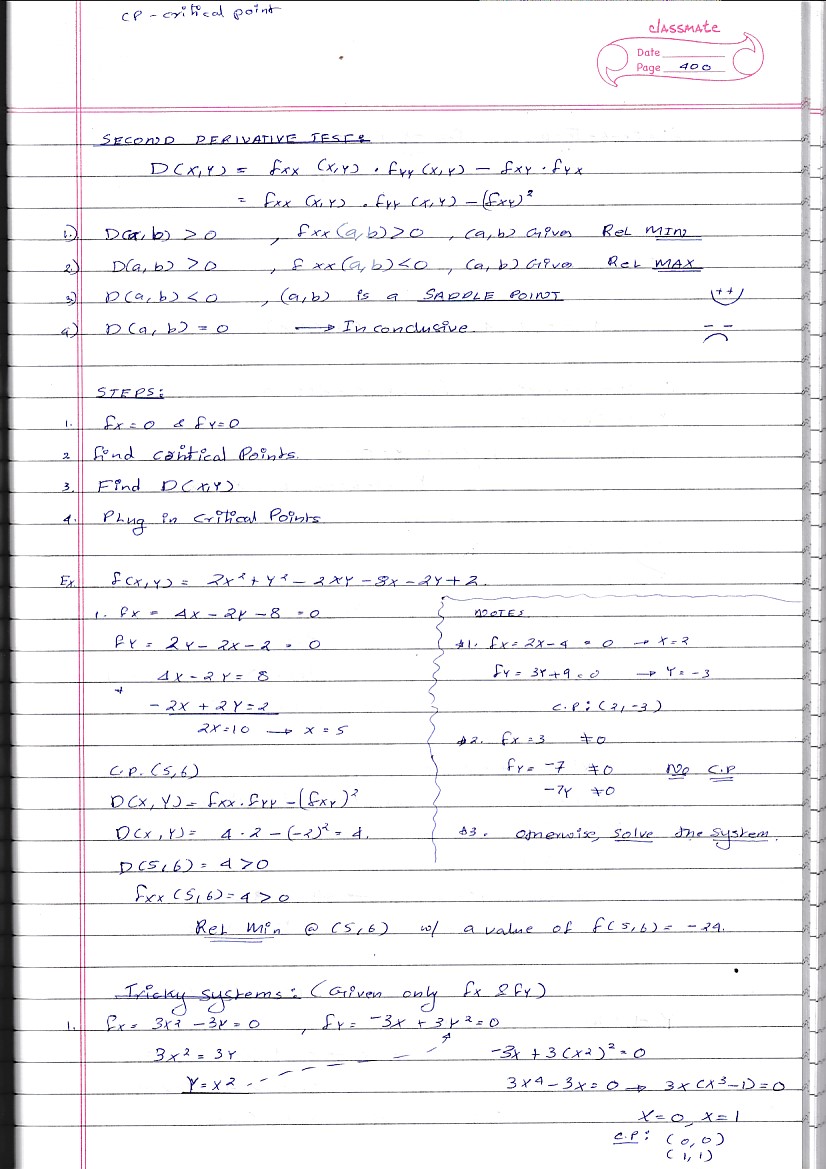 CP - critical point
classmate
Date
Page 400
SECOND DERIVATIVE TEST:
D(x,y) = fxx (x,y) . fyy (x,y) - fxy . fyx
= fxx (x,y) . fyy (x,y) - (fxy)²
1.) D(a, b) > 0 , fxx(a,b)>0 , (a,b) Gives Rel MIN
2.) D(a, b) > 0 , f xx(a,b)<0 , (a,b) Gives Rel MAX
3) D(a, b) < 0 , (a,b) is a SADDLE POINT
4) D(a, b) = 0 → Inconclusive.
STEPS:
1. fx=0 & fy=0
2 find critical Points.
3. Find D(x,y)
4. Plug in Critical Points
Ex. f(x,y) = 2x² + y² - 2xy - 8x - 2y + 2.
1. fx = 4x - 2y - 8 = 0
fy = 2y - 2x - 2 = 0
4x - 2y = 8
+
- 2x + 2y = 2
2x=10 → x = 5
C.P. (5,6)
D(x, y) = fxx . fyy - (fxy)²
D(x, y) = 4 . 2 - (-2)² = 4.
D(5,6) = 4 > 0
fxx (5,6) = 4 > 0
Rel Min @ (5,6) w/ a value of f(5,6) = -24.
NOTES
#1. fx = 2x - 4 = 0 → x = 2
fy = 3y + 9 = 0 → y = -3
C.P: (2,-3)
#2. fx = 3 ≠0
fy = -7 ≠0 No C.P
-7y ≠0
#3. Otherwise, solve the system.
Tricky systems: (Given only fx & fy)
1. fx = 3x² - 3y = 0 , fy = -3x + 3y² = 0
3x² = 3y
y = x²
-3x + 3(x²)² = 0
3x⁴ - 3x = 0 → 3x (x³ - 1) = 0
x = 0, x = 1
C.P: (0,0)
(1,1)